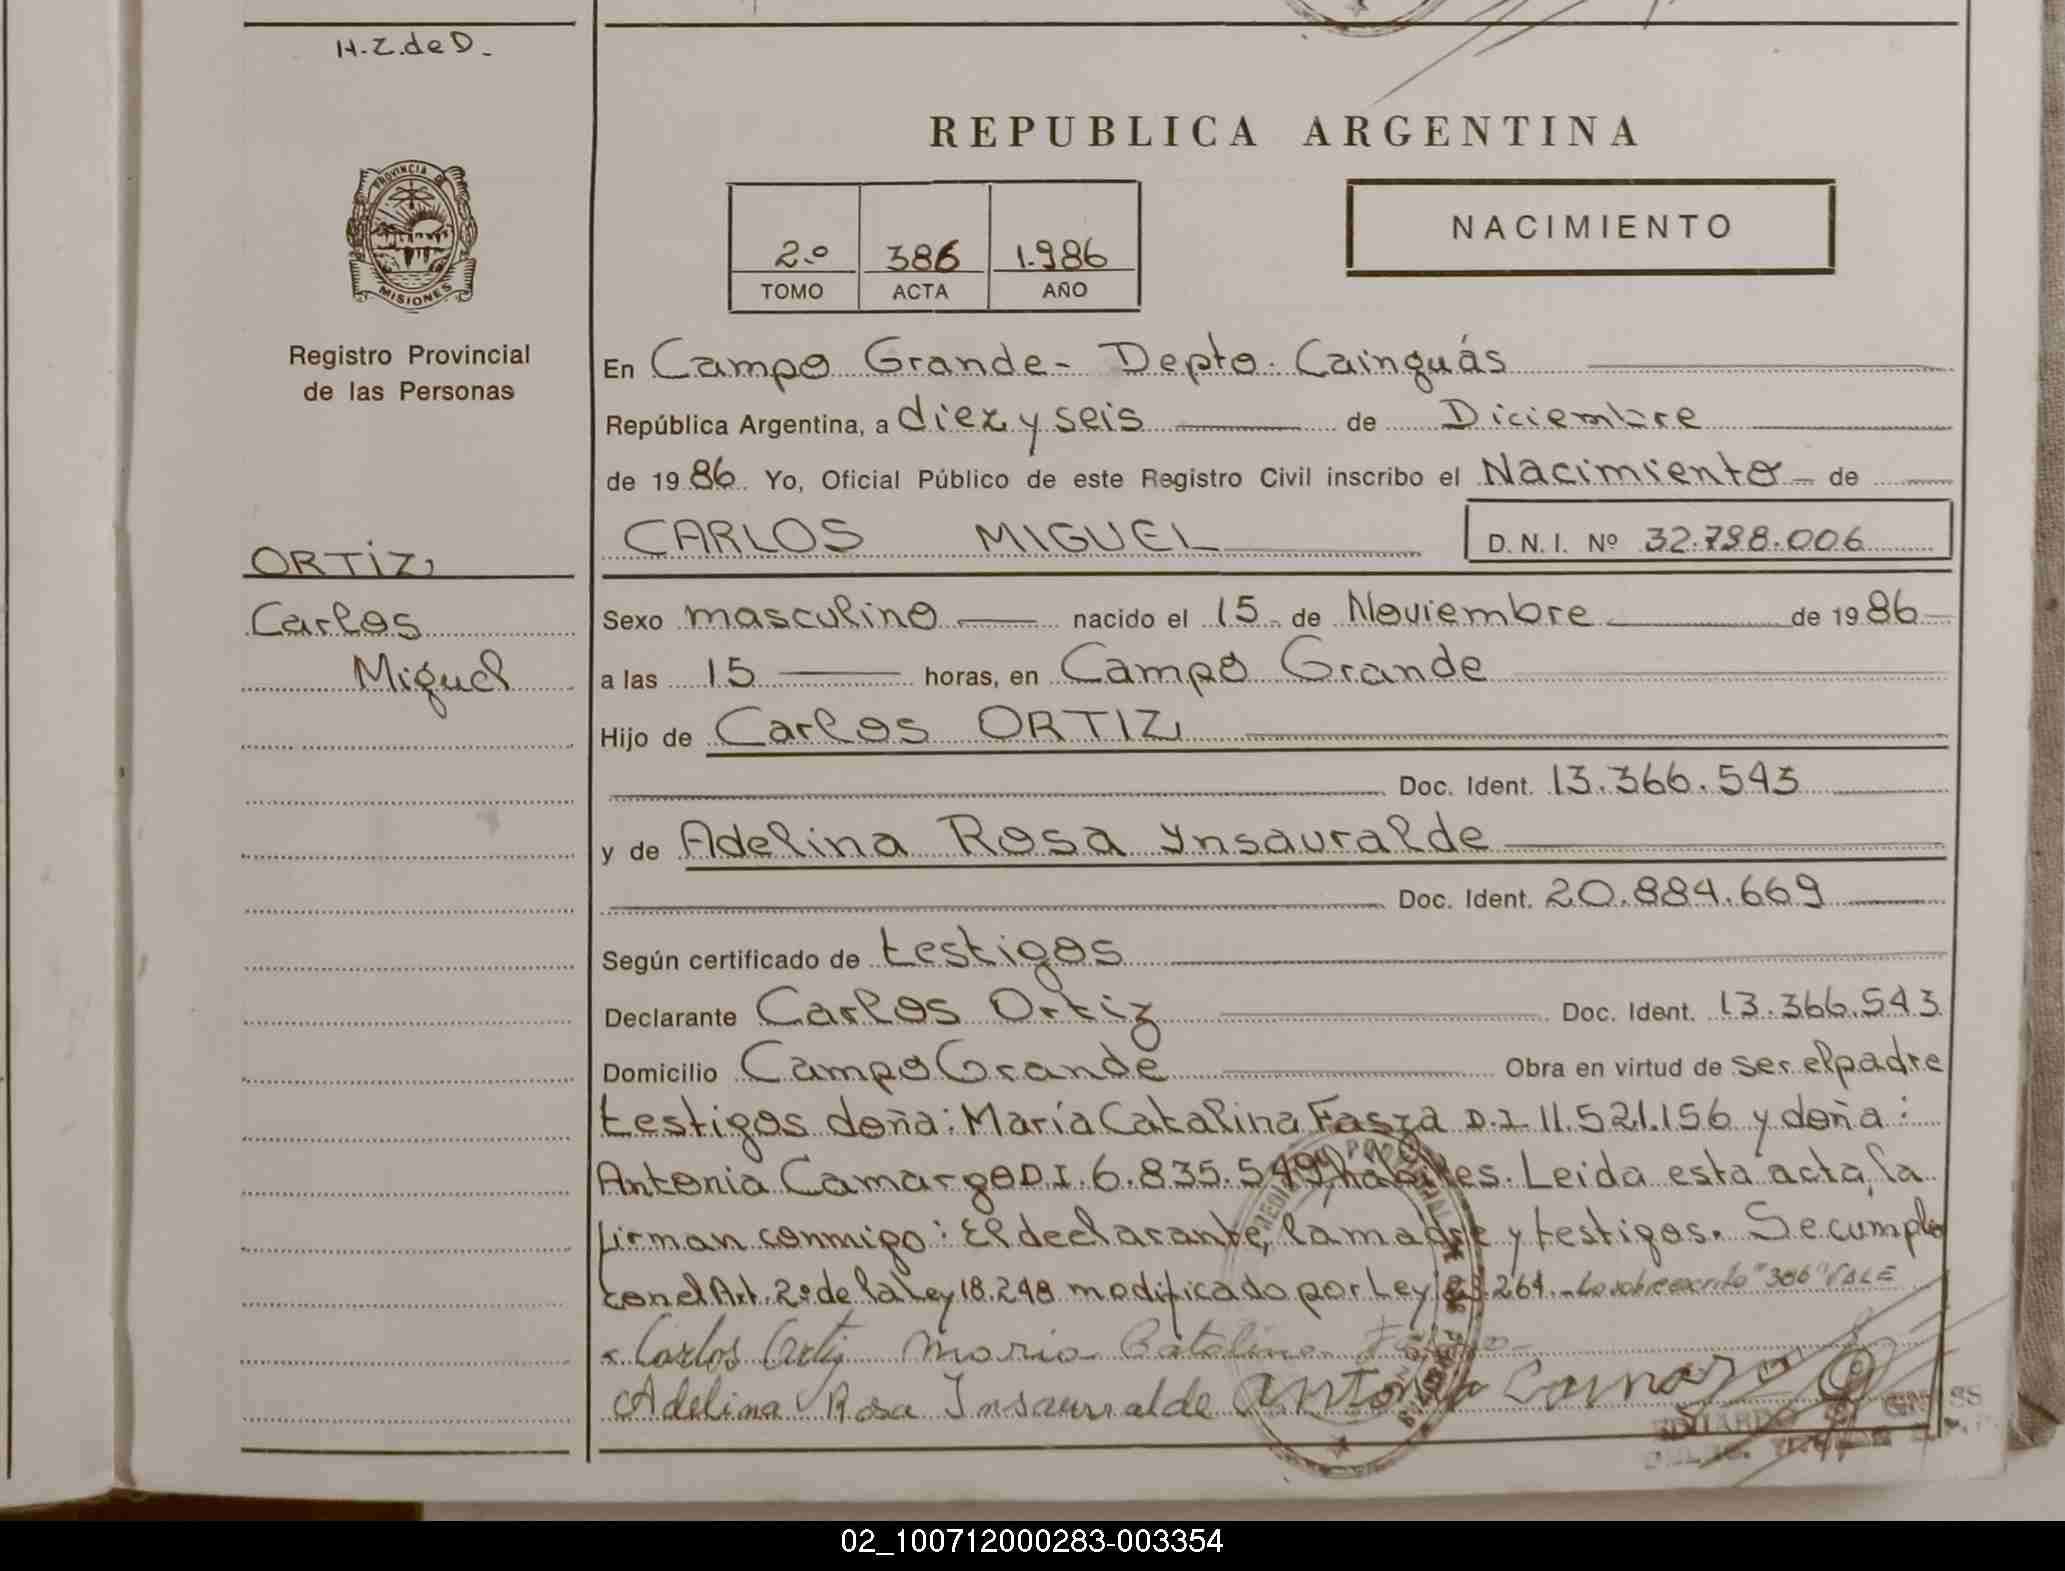 H.Z.deD.
REPUBLICA ARGENTINA
PROVINCIA DE
MISIONES
Registro Provincial
de las Personas
2.º 386 1.986
TOMO ACTA AÑO
NACIMIENTO
En Campo Grande- Depto. Cainguás
República Argentina, a diez y seis de Diciembre
de 1986 Yo, Oficial Público de este Registro Civil inscribo el Nacimiento de
CARLOS MIGUEL D.N.I. Nº 32.788.006
ORTIZ
Carlos
Miguel
Sexo masculino nacido el 15 de Noviembre de 1986
a las 15 horas, en Campo Grande
Hijo de Carlos ORTIZ
Doc. Ident. 13.366.543
y de Adelina Rosa Ynsauralde
Doc. Ident. 20.884.669
Según certificado de testigos
Declarante Carlos Ortiz Doc. Ident. 13.366.543
Domicilio Campo Grande Obra en virtud de ser el padre
testigos doña: María Catalina D.I. 11.521.156 y doña:
Antonia Camargo D.I. 6.835.549, habiles. Leida esta acta, la
firman conmigo: El declarante, la madre y testigos. Se cumplio
con el Art. 2º de la Ley 18.248 modificado por Ley 23.264.- Lo sobreescrito "386" VALE
Carlos Ortiz Maria Catalina
Adelina Rosa Insaurralde Antonia Camargo
EDUARDO
02_100712000283-003354